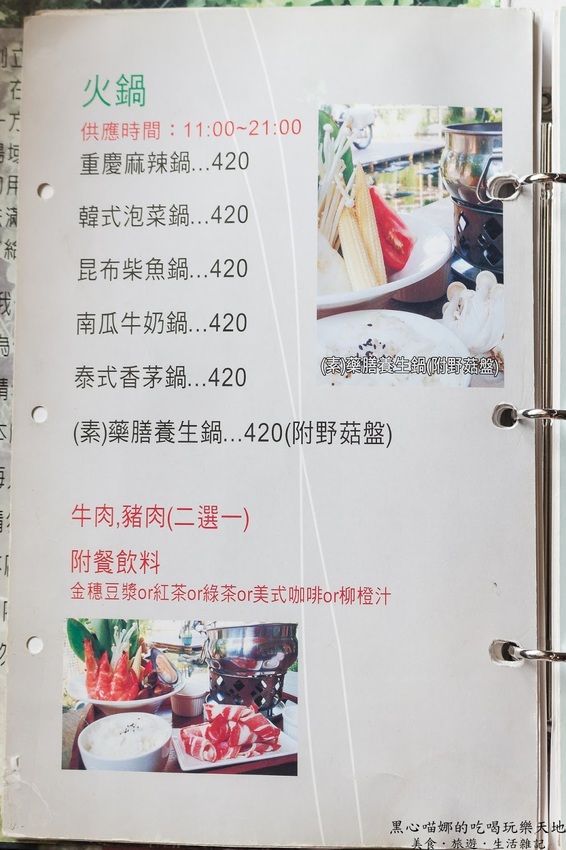 火鍋
供應時間：11:00~21:00
重慶麻辣鍋...420
韓式泡菜鍋...420
昆布柴魚鍋...420
南瓜牛奶鍋...420
泰式香茅鍋...420
(素)藥膳養生鍋(附野菇盤)
(素)藥膳養生鍋...420(附野菇盤)
牛肉,豬肉(二選一)
附餐飲料
金穗豆漿or紅茶or綠茶or美式咖啡or柳橙汁
黑心喵娜的吃喝玩樂天地
美食・旅遊・生活雜記